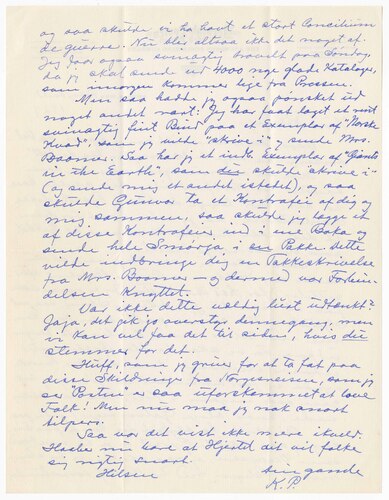 og saa skulde vi ha havt et stort Concilium
de guerre. Nu blir altsaa ikke det noget af.
Jeg faar ogsaa svinagtig travelt paa Søndag,
da jeg skal sende ud 4000 nye glade Kataloger,
som imorgen kommer lige fra Pressen.
Men saa hadde jeg ogsaa pønsket ud
noget andet rart. Jeg har faat laget et rart
svinagtig fint Bind paa et Exemplar af "Norske
Kvad", som jeg vilde "skrive i" og sende Mrs.
Boomer. Saa har jeg et indb. Exemplar af "Giants
in the Earth", som du skulde "skrive i"
(og sende mig et andet istedet), og saa
skulde Gunvor ta et Kontrafei af dig og
mig sammen, saa skulde jeg lægge et
af disse Kontrafeier ind i hver Boka og
sende hele Smørja i en Pakke. Dette
vilde indbringe dig en Takkeskrivelse
fra Mrs. Boomer – og dermed var Forbin-
delsen Knyttet.
Var ikke dette veldig lurt uttænkt?
Jaja, det gik jo overstyr dennegang, men
vi kan vel faa det til siden, hvis du
stemmer for det.
Huff, som jeg gruer for at ta fat paa
disse Skildringer fra Norgesreisen, som jeg
ser "Posten" er saa uforskammet at love
Folk! Men nu maa jeg nok snart
tilpers.
Saa var det vist ikke mere ikveld.
Haaber nu bare at Hjertet dit vil falke
sig rigtig snart.
Hilsen
din gande
K. P.